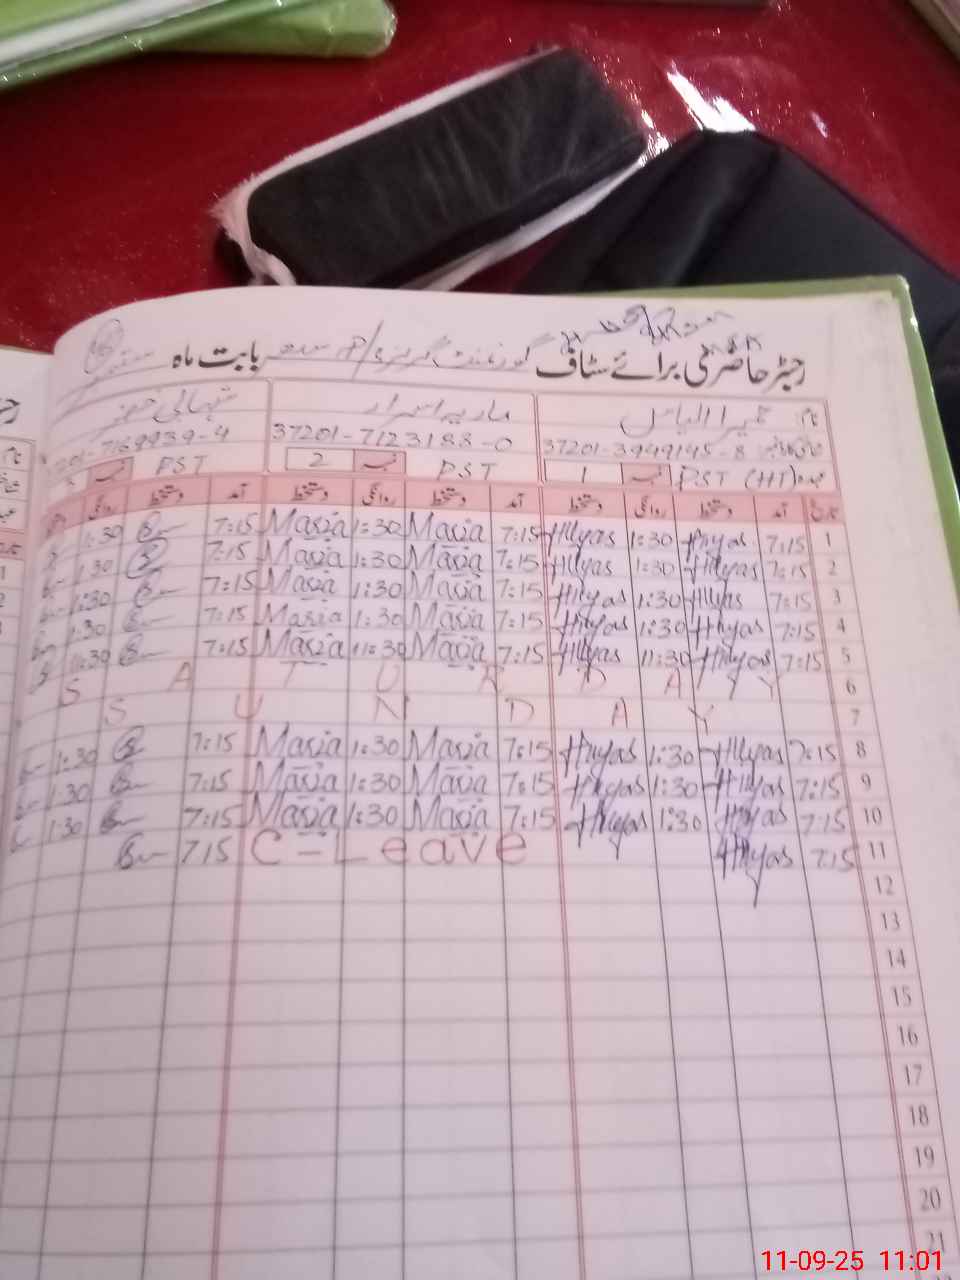 رجسٹر حاضری برائے سٹاف گورنمنٹ گرلز بابت ماہ ستمبر
نام: حمیرا الیاس ماریہ اسرار
37201-3949145-8 37201-7123188-0 201-7169939-4
عہدہ PST (HT) نمبر 1 PST نمبر 2 PST نمبر
تاریخ آمد دستخط روانگی دستخط آمد دستخط روانگی دستخط آمد دستخط روانگی
1 7:15 Hllyas 1:30 Hllyas 7:15 Maria 1:30 Maria 7:15 1:30
2 7:15 Hllyas 1:30 Hllyas 7:15 Maria 1:30 Maria 7:15 1:30
3 7:15 Hllyas 1:30 Hllyas 7:15 Maria 1:30 Maria 7:15 1:30
4 7:15 Hllyas 1:30 Hllyas 7:15 Maria 1:30 Maria 7:15 1:30
5 7:15 Hllyas 11:30 Hllyas 7:15 Maria 11:30 Maria 7:15 11:30
6 S A T U R D A Y Y
7 S U N D A Y
8 7:15 Hllyas 1:30 Hllyas 7:15 Maria 1:30 Maria 7:15 1:30
9 7:15 Hllyas 1:30 Hllyas 7:15 Maria 1:30 Maria 7:15 1:30
10 7:15 Hllyas 1:30 Hllyas 7:15 Maria 1:30 Maria 7:15 1:30
11 7:15 Hllyas C-Leave 715
12
13
14
15
16
17
18
19
20
21
11-09-25 11:01